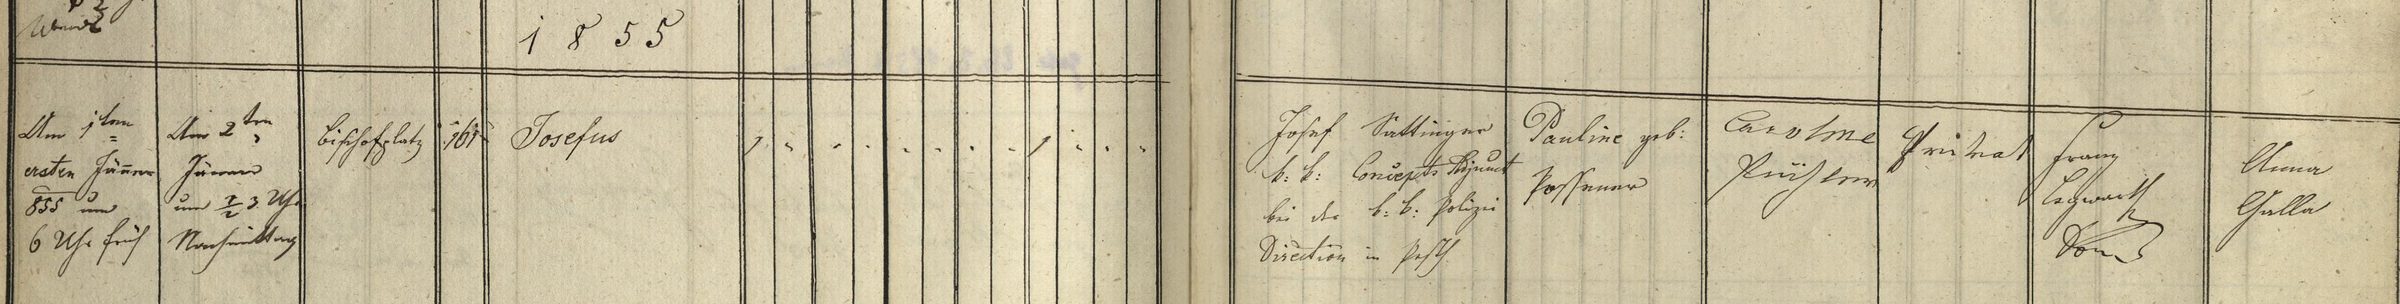 1855
Am 1ten
ersten Jänner
855 um
6 Uhr früh
Am 2ten
Jänner
um 1/2 3 Uhr
Nachmittag
Bischofplatz
161
Josefus
1 " " " " " " " 1 " " "
Josef Sattinger
k: k: Concepts Adjunct
bei der k: k: Polizei
Direction in Pesth
Pauline geb:
Possener
Caroline
Püchler
Privat
Franz
Anna
Galla